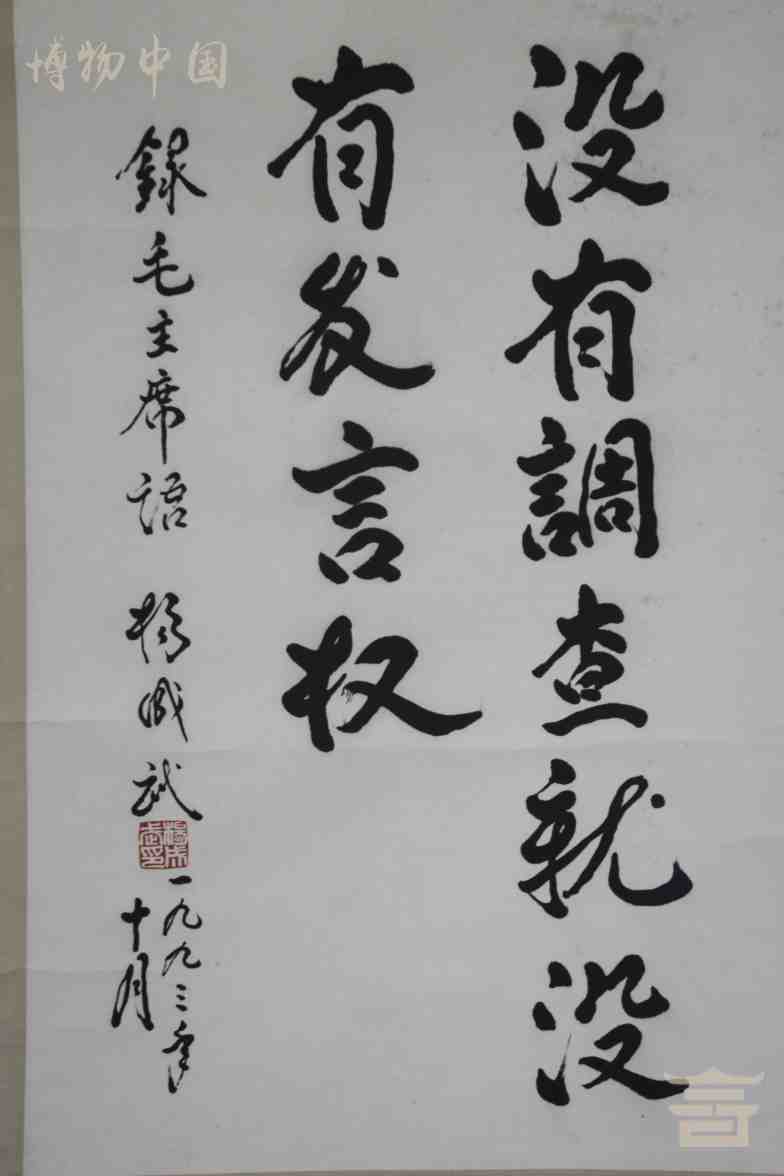 博物中国
没有調查就没
有发言权
録毛主席語 楊成武
楊成武印
一九九三年
十月